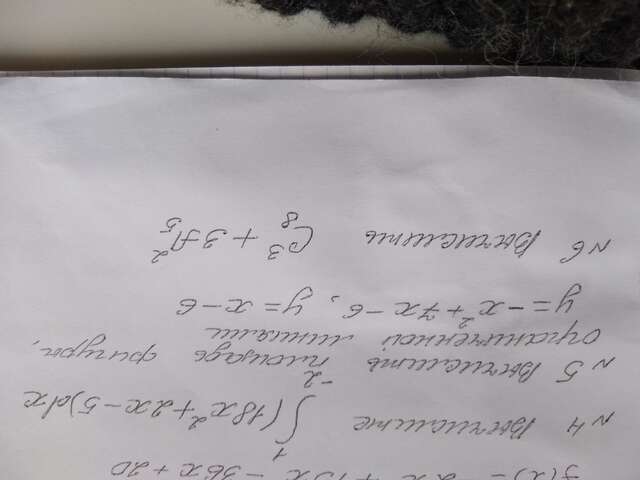 f(x) = - x + x - 36x + 20
N4 Вычислите ∫₋₂¹ (18x² + 2x - 5)dx
N5 Вычислить площадь фигуры,
ограниченной линиями
y = -x² + 7x - 6, y = x - 6
N6 Вычислить C₈³ + 3A₅²